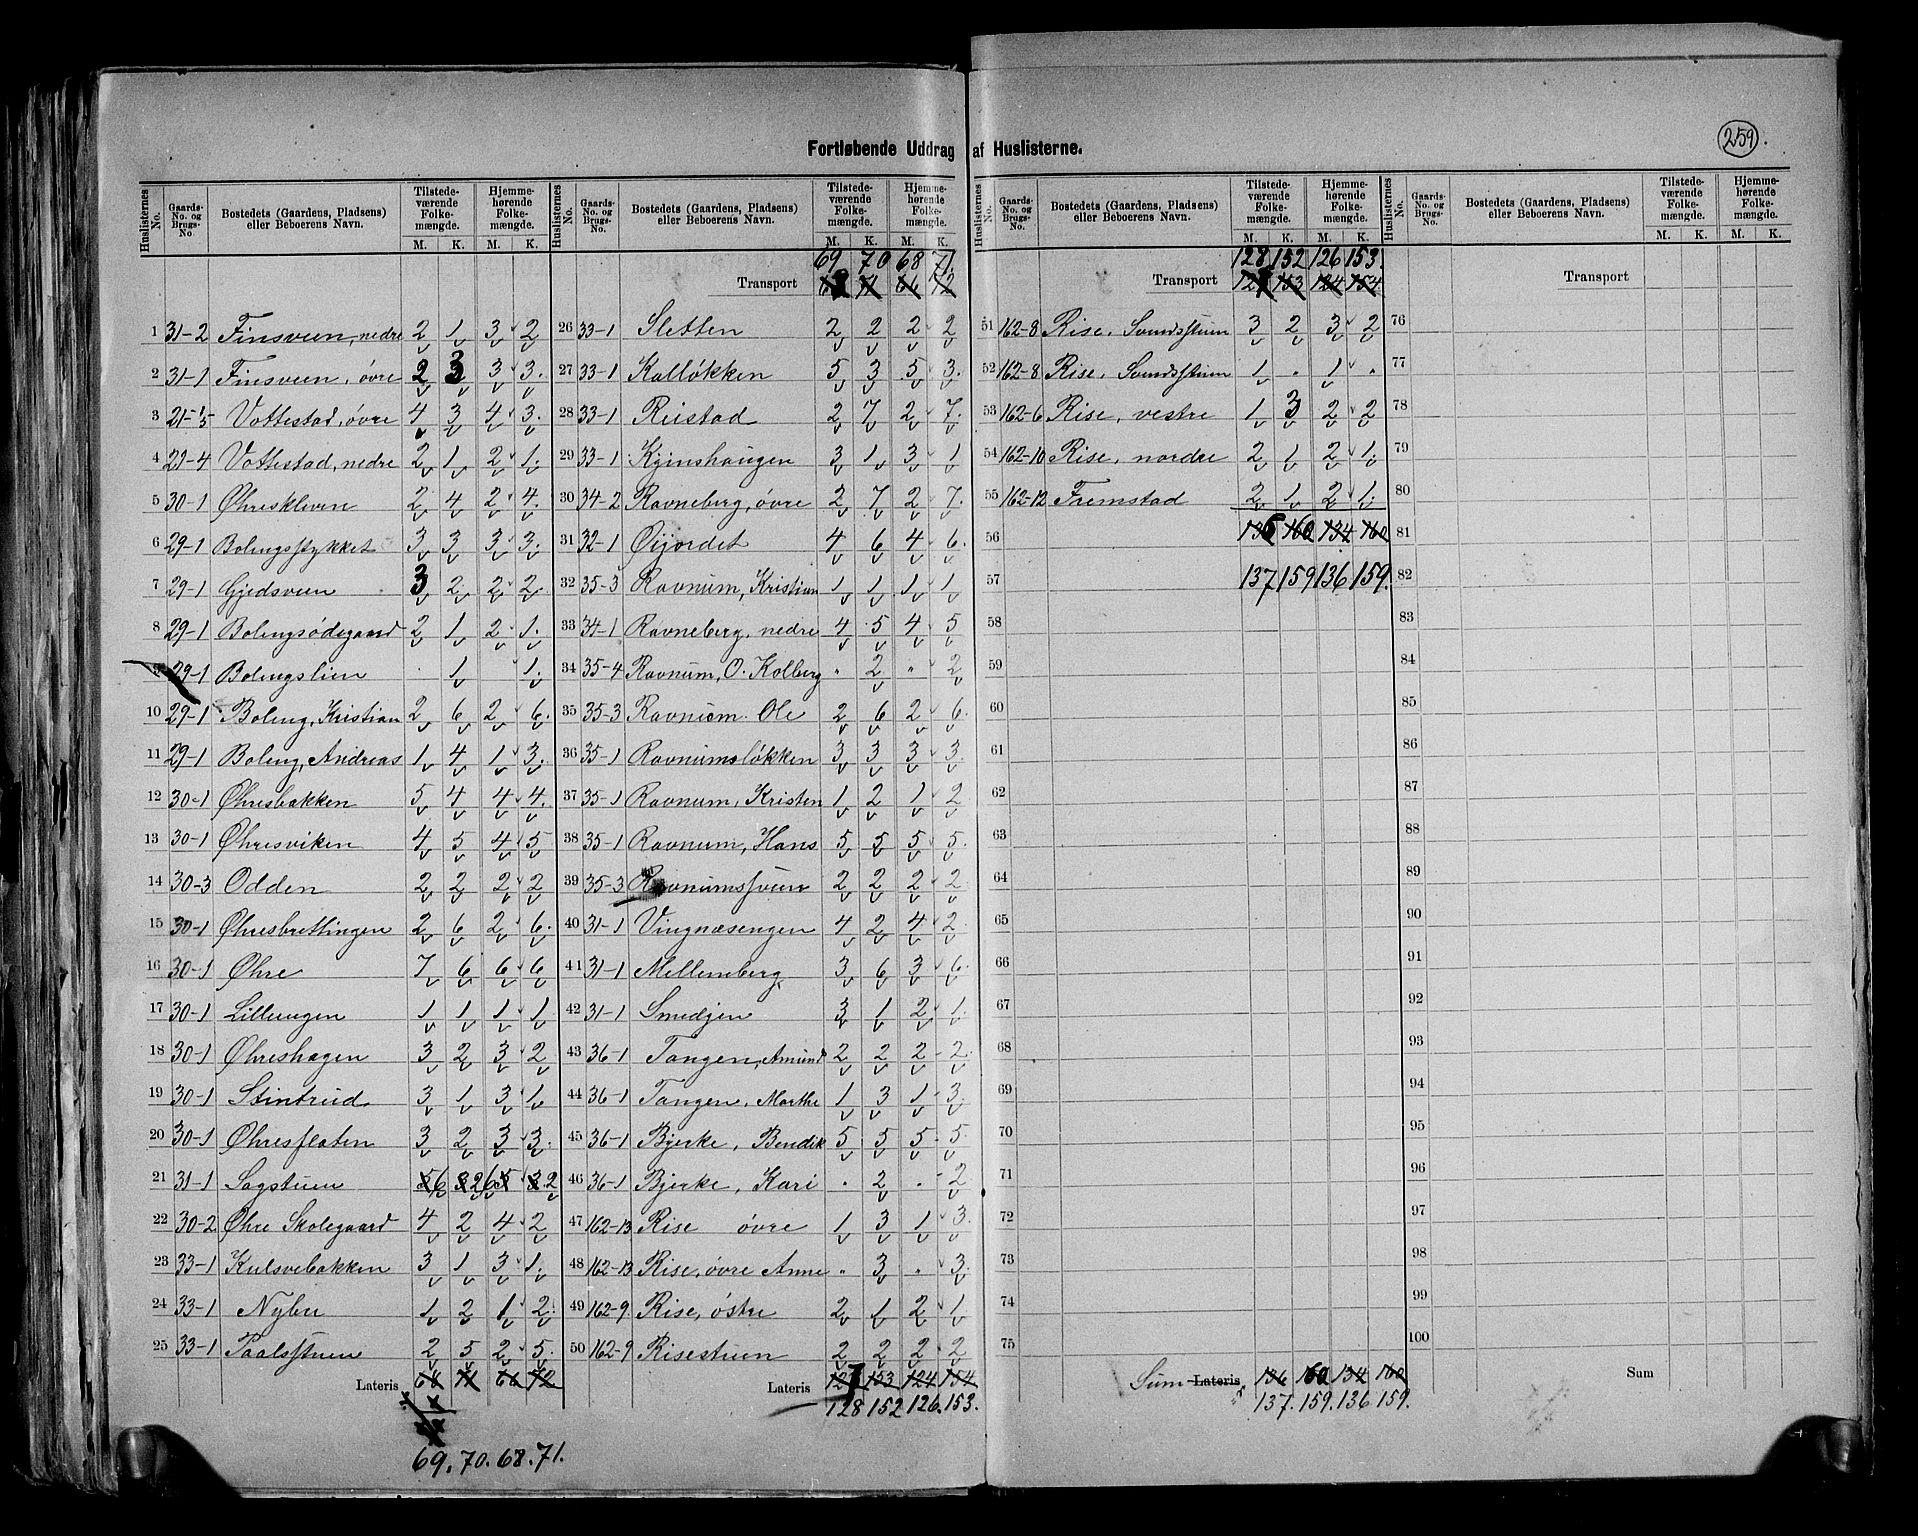 259.
Fortløbende Uddrag af Huslisterne.
Huslisternes No. | Gaards-No. og Brugs-No. | Bostedets (Gaardens, Pladsens) eller Beboerens Navn. | Tilstedeværende Folkemængde. M. K. | Hjemmehørende Folkemængde. M. K.
1 31-2 Finsveen, nedre 2 1 3 2
2 31-1 Finsveen, øvre 2 3 3 3.
3 Vottestad, øvre 4 3 4 3.
4 29-4 Vottestad, nedre 2 1 2 1.
5 30-1 Øhreskleven 2 4 2 4.
6 29-1 Bolingsstykket 3 3 3 3.
7 29-1 Gjedsveen 3 2 2 2.
8 29-1 Bolingsødegaard 2 1 2 1.
9 29-1 Bolingslien . 1 1.
10 29-1 Boling, Kristian 2 6 2 6.
11 29-1 Boling, Andreas 1 4 1 3.
12 30-1 Øhresbakken 5 4 4 4.
13 30-1 Øhresviken 4 5 4 5
14 30-3 Odden 2 2 2 2
15 30-1 Øhresbrettingen 2 6 2 6.
16 30-1 Øhre 7 6 6 6
17 30-1 Lilleengen 1 1 1 1
18 30-1 Øhreshagen 3 2 3 2
19 30-1 Stintrud 3 1 3 1
20 30-1 Øhresflaten 3 2 3 3.
21 31-1 Sagstuen 6 2 6 2
22 30-2 Øhre Skolegaard 4 2 4 2
23 33-1 Kulsvebakken 3 1 3 1.
24 33-1 Nybu 1 2 1 2.
25 33-1 Paalsstuen 2 5 2 5.
Lateris 71 66 72
69. 70. 68. 71.
Huslisternes No. | Gaards-No. og Brugs-No. | Bostedets (Gaardens, Pladsens) eller Beboerens Navn. | Tilstedeværende Folkemængde. M. K. | Hjemmehørende Folkemængde. M. K.
69 70 68 71.
Transport 71 66 72
26 33-1 Sletten 2 2 2 2
27 33-1 Kalløkken 5 3 5 3.
28 33-1 Reistad 2 7 2 7.
29 33-1 Kjinshaugen 3 1 3 1
30 34-2 Ravneberg, øvre 2 7 2 7.
31 32-1 Øijordet 4 6 4 6.
32 35-3 Ravnum, Kristian 1 1 1 1
33 34-1 Ravneberg, nedre 4 5 4 5
34 35-4 Ravnum, O. Kolberg " 2 " 2
35 35-3 Ravnum. Ole 2 6 2 6.
36 35-1 Ravnumsløkken 3 3 3 3.
37 35-1 Ravnum, Kristen 1 2 1 2
38 35-1 Ravnum, Hans 5 5 5 5.
39 35-3 Ravnumsveen 2 2 2 2
40 31-1 Vingnæsengen 4 2 4 2.
41 31-1 Mellemberg 3 6 3 6.
42 31-1 Smedjen 3 1 2 1.
43 36-1 Tangen, Amund 2 2 2 2.
44 36-1 Tangen, Marthe 1 3 1 3.
45 36-1 Bjerke, Bendik 5 5 5 5.
46 36-1 Bjerke, Kari " 2 " 2
47 162-13 Rise øvre 1 3 1 3.
48 162-13 Rise, øvre Anne " 3 " 3.
49 162-9. Rise, østre 2 1 2 1
50 162-9 Risestuen 2 2 2 2
Lateris 127 153 124 154
128 152 126. 153.
Huslisternes No. | Gaards-No. og Brugs-No. | Bostedets (Gaardens, Pladsens) eller Beboerens Navn. | Tilstedeværende Folkemængde. M. K. | Hjemmehørende Folkemængde. M. K.
128 152 126 153.
Transport 127 153 124 154
51 162-8 Rise, Svendsstuen 3 2 3 2
52 162-8 Rise, Svendsstuen 1 " 1 "
53 162-6 Rise, vestre 1 3 2 2
54 162-10 Rise, nordre 2 1 2 1.
55 162-12 Fremstad 2 1 2 1.
56 136 160 134 160
57 137 159 136 159.
58
59
60
61
62
63
64
65
66
67
68
69
70
71
72
73
74
75
Sum Lateris 136 160 134 160
137. 159. 136 159.
Huslisternes No. | Gaards-No. og Brugs-No. | Bostedets (Gaardens, Pladsens) eller Beboerens Navn. | Tilstedeværende Folkemængde. M. K. | Hjemmehørende Folkemængde. M. K.
Transport
76
77
78
79
80
81
82
83
84
85
86
87
88
89
90
91
92
93
94
95
96
97
98
99
100
Sum